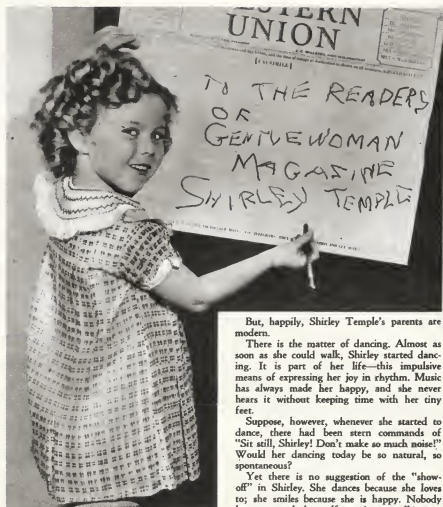 STERN
UNION
TO THE READERS
OF
GENTLEWOMAN
MAGASINE
SHIRLEY TEMPLE
But, happily, Shirley Temple's parents are
modern.
There is the matter of dancing. Almost as
soon as she could walk, Shirley started danc-
ing. It is part of her life—this impulsive
means of expressing her joy in rhythm. Music
has always made her happy, and she never
hears it without keeping time with her tiny
feet.
Suppose, however, whenever she started to
dance, there had been stern commands of
"Sit still, Shirley! Don't make so much noise!"
Would her dancing today be so natural, so
spontaneous?
Yet there is no suggestion of the "show-
off" in Shirley. She dances because she loves
to; she smiles because she is happy. Nobody